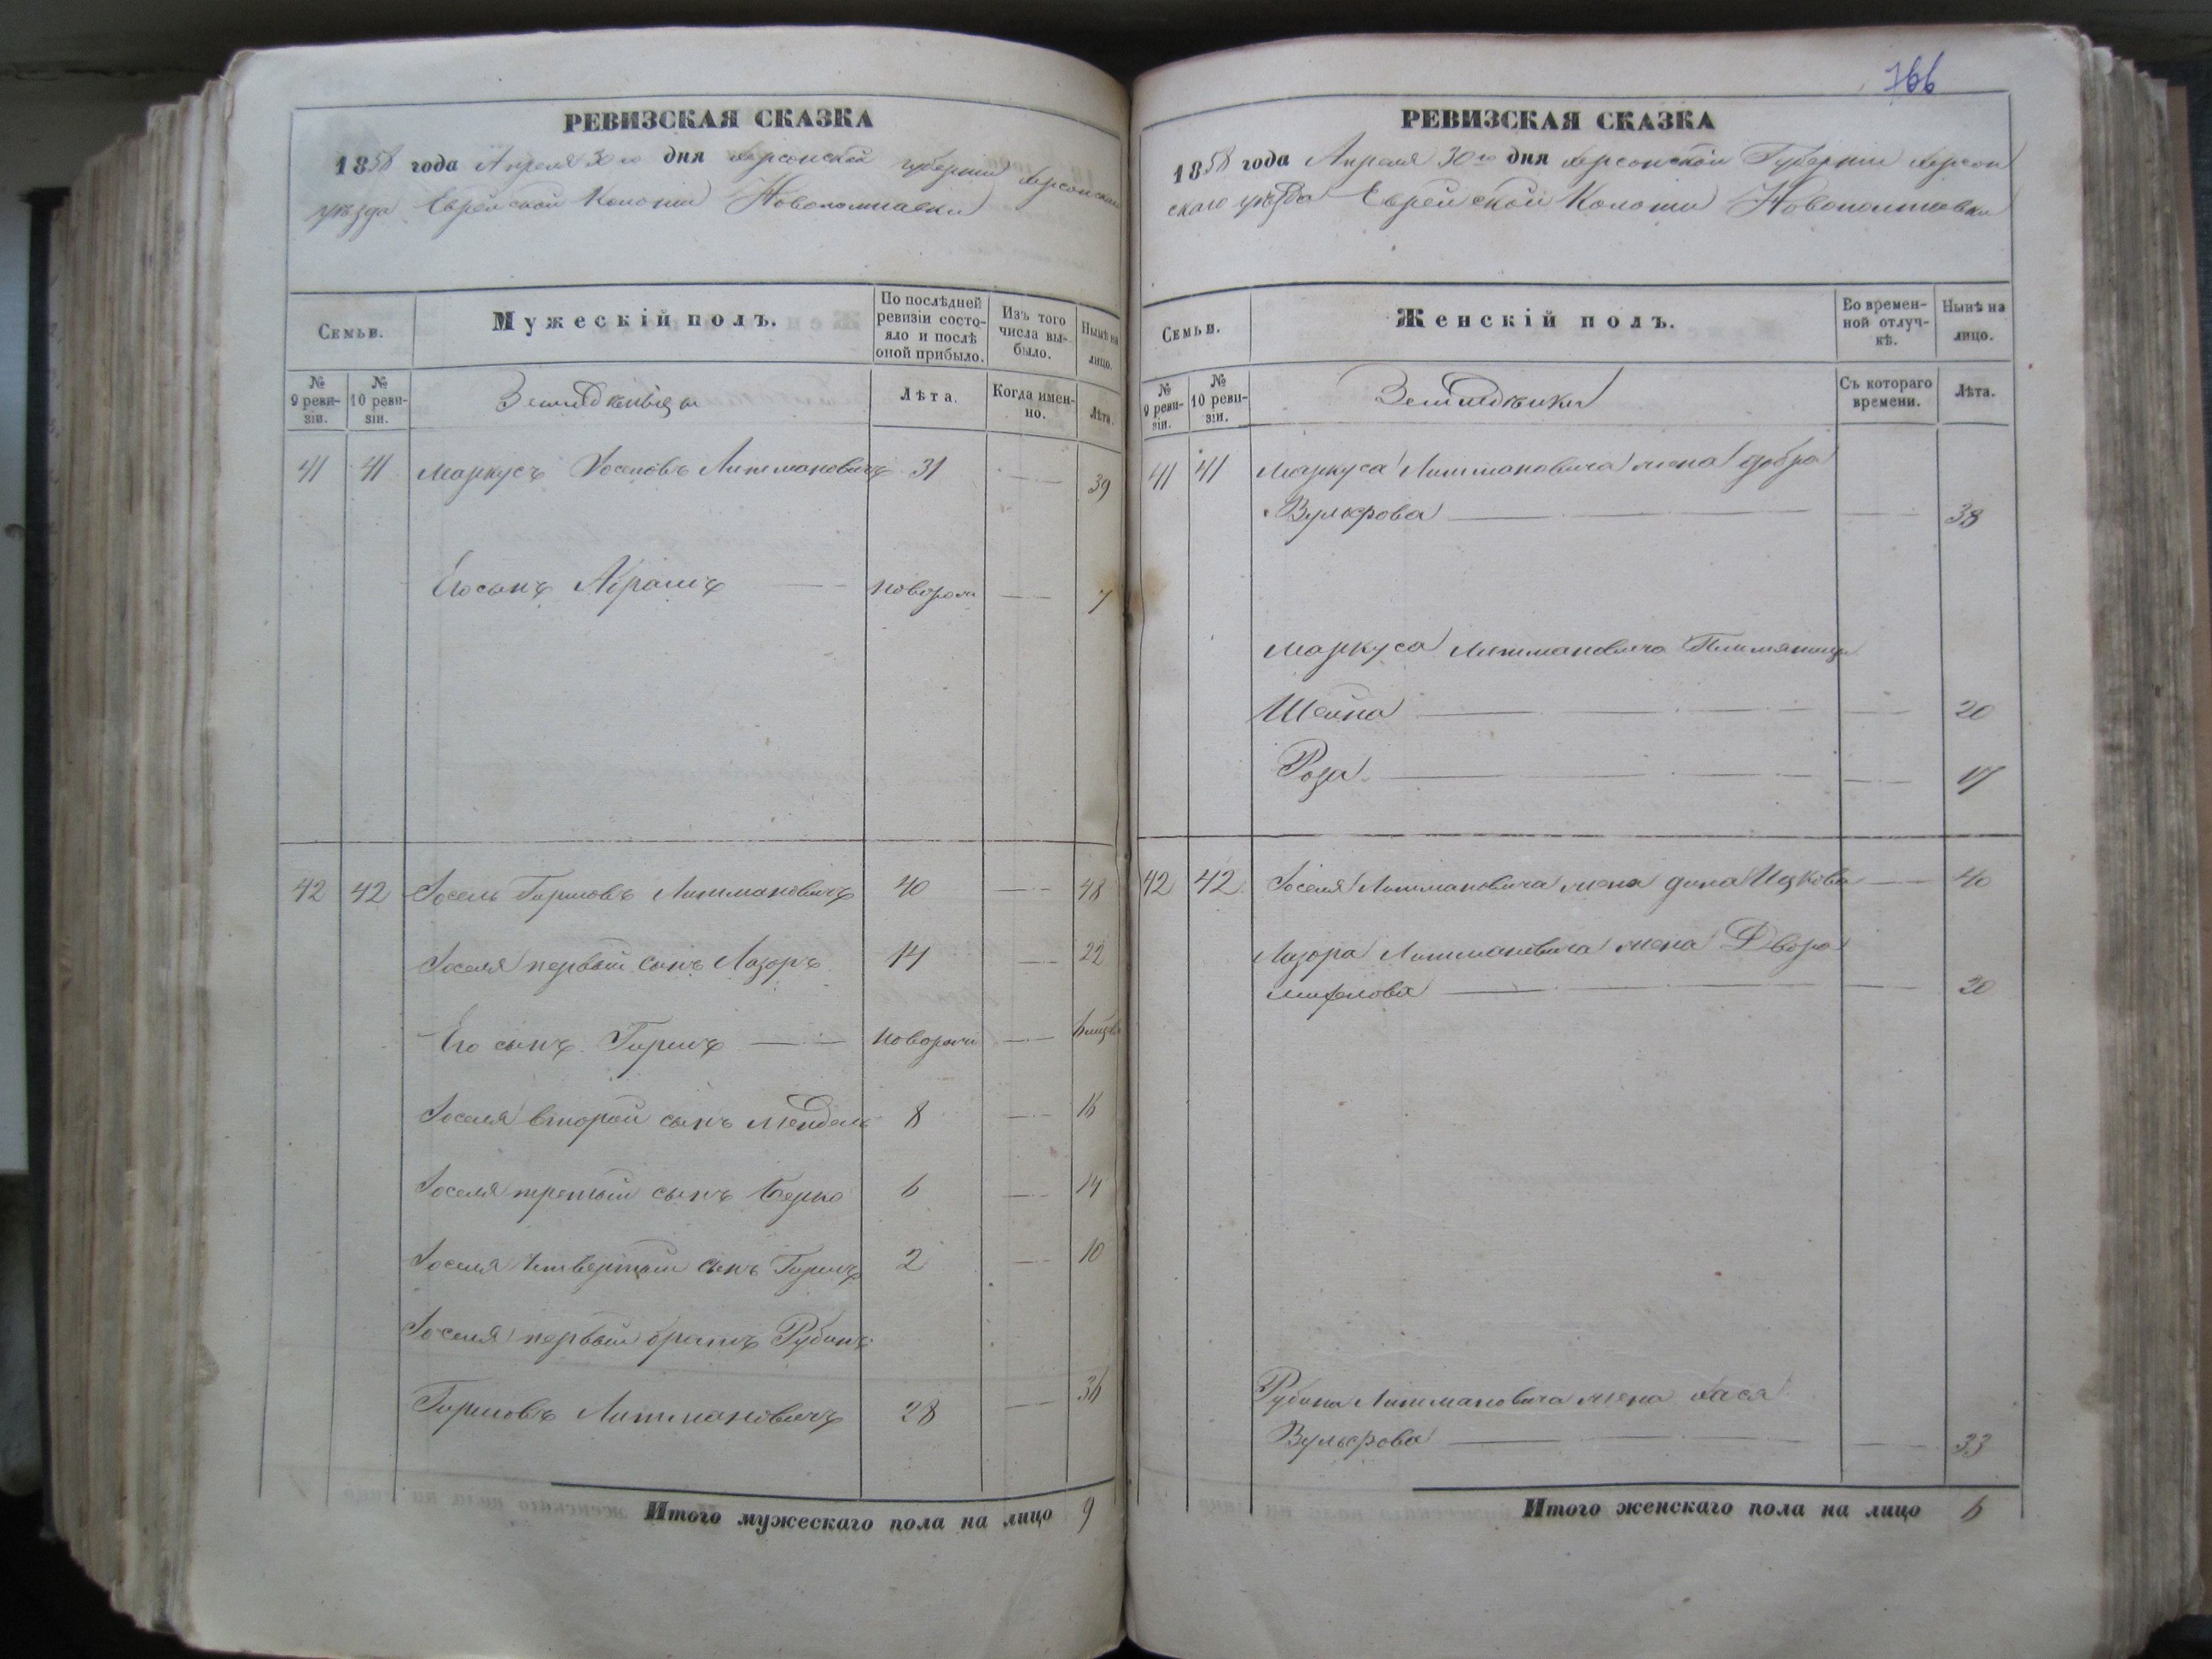 РЕВИЗСКАЯ СКАЗКА
1858 года Апреля 30го дня Херсонской губернии Херсонскаго
уѣзда Еврейской Колонии Новополтавки
Семьи.
Мужескій полъ.
По послѣдней ревизіи состояло и послѣ оной прибыло.
Изъ того числа выбыло.
Нынѣ на лицо.
№ 9 ревизіи.
№ 10 ревизіи.
Земледѣльцы
Лѣта.
Когда именно.
Лѣта.
41 41 Маркусъ Іосіовъ Литмановичъ 31 39
Его сынъ Абрамъ новорож 7
42 42 Іосель Гиршовъ Литмановичъ 40 48
Іоселя первый сынъ Лазоръ 14 22
Его сынъ Гиршъ новорож 6 мцевъ
Іоселя второй сынъ Мендель 8 16
Іоселя третий сынъ Берко 6 14
Іоселя четвертый сынъ Гиршъ 2 10
Іоселя первый братъ Рубинъ
Гиршовъ Литмановичъ 28 36
Итого мужескаго пола на лицо 9
766
РЕВИЗСКАЯ СКАЗКА
1858 года Апреля 30го дня Херсонской Губернии Херсон
скаго уѣзда Еврейской Колонии Новополтавки
Семьи.
Женскій полъ.
Во временной отлучкѣ.
Нынѣ на лицо.
№ 9 ревизіи.
№ 10 ревизіи.
Съ котораго времени.
Лѣта.
41 41 Маркуса Литмановича жена Добра
Вульфова 38
Маркуса Литмановича Племяницы
Шейна 20
Роза 17
42 42 Іоселя Литмановича жена Дина Ицкова 40
Лазора Литмановича жена Двора
20
Рубина Литмановича жена Хася
Вульфова 33
Итого женскаго пола на лицо 6